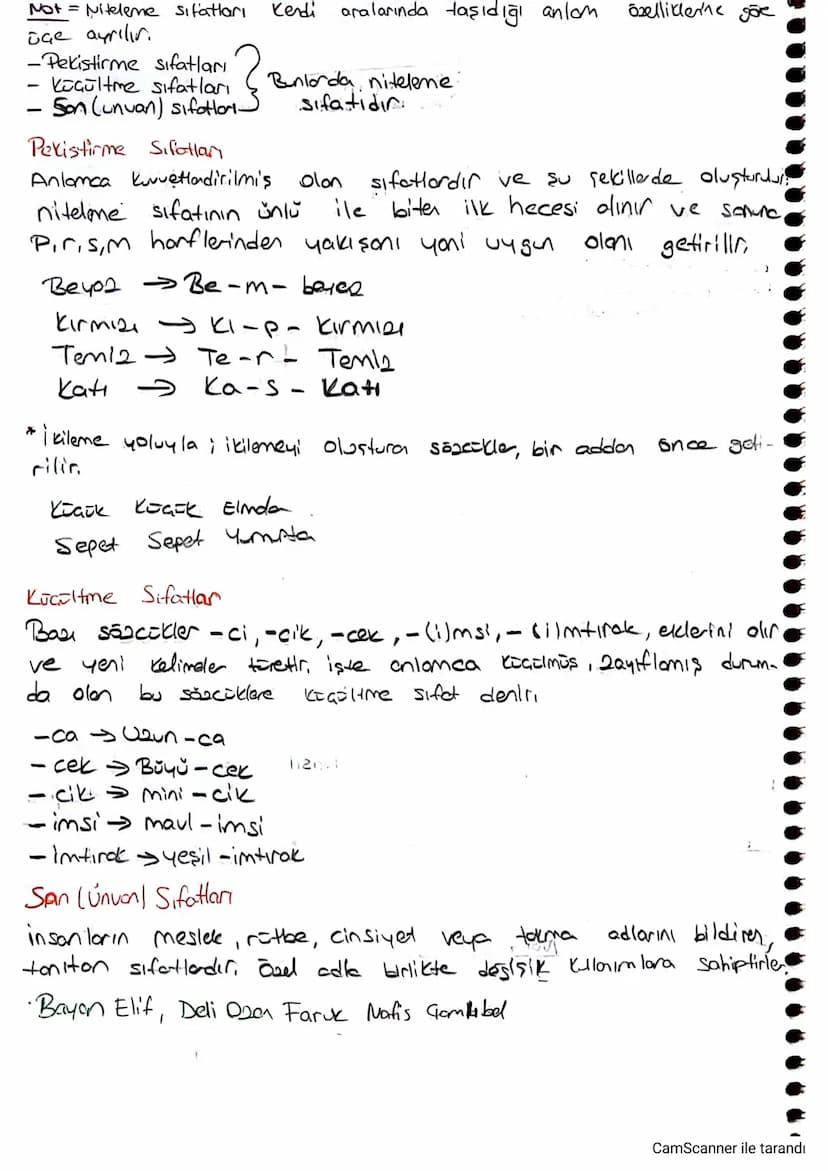 Not = Niteleme sıfatları kendi aralarında taşıdığı anlam özelliklerine göre
üçe ayrılır.
- Pekiştirme sıfatları
- Küçültme sıfatları
- San (unvan) sıfatları
Bunlarda niteleme
sıfatıdır.
Pekiştirme Sıfatları
Anlamca kuvvetlendirilmiş olan sıfatlardır ve şu şekillerde oluşturulur;
niteleme sıfatının ünlü ile biten ilk hecesi alınır ve sonuna
P, r, s, m harflerinden yakışanı yani uygun olanı getirilir.
Beyaz → Be - m - beyaz
Kırmızı → Kı - p - Kırmızı
Temiz → Te - r - Temiz
Katı → Ka - s - Katı
* İkileme yoluyla ; ikilemeyi oluşturan sözcükler, bir addan önce geti-
rilir.
Küçük Küçük Elmalar
Sepet Sepet Yumurta
Küçültme Sıfatları
Bazı sözcükler -ci, -cik, -cek, -(i)msi, -(i)mtırak, eklerini alır
ve yeni kelimeler türetir, işte anlamca küçülmüş, zayıflamış durum-
da olan bu sözcüklere küçültme sıfat denir.
- ca → Uzun - ca
- cek → Büyü - cek
- cik → mini - cik
- imsi → mavi - imsi
- imtırak → yeşil - imtırak
San (Ünvan) Sıfatları
insanların meslek, rütbe, cinsiyet veya takma adlarını bildiren,
tanıtan sıfatlardır. Özel adla birlikte değişik kullanımlara sahiptirler.
· Bayan Elif, Deli Ozan Faruk Nafis Çamlıbel
CamScanner ile tarandı